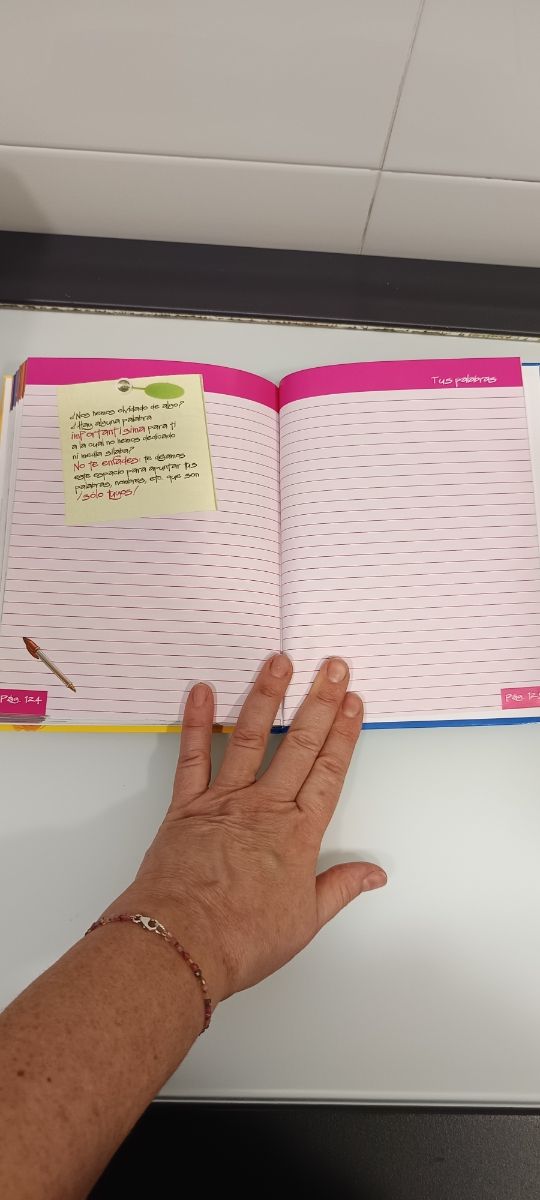 ¿Nos hemos olvidado de algo?
¿Hay alguna palabra
importantísima para ti
a la cual no hemos dedicado
ni media sílaba?
No te enfades: te dejamos
este espacio para apuntar tus
palabras, nombres, etc. que son
¡sólo tuyos!
Tus palabras
Pág. 124
Pág.